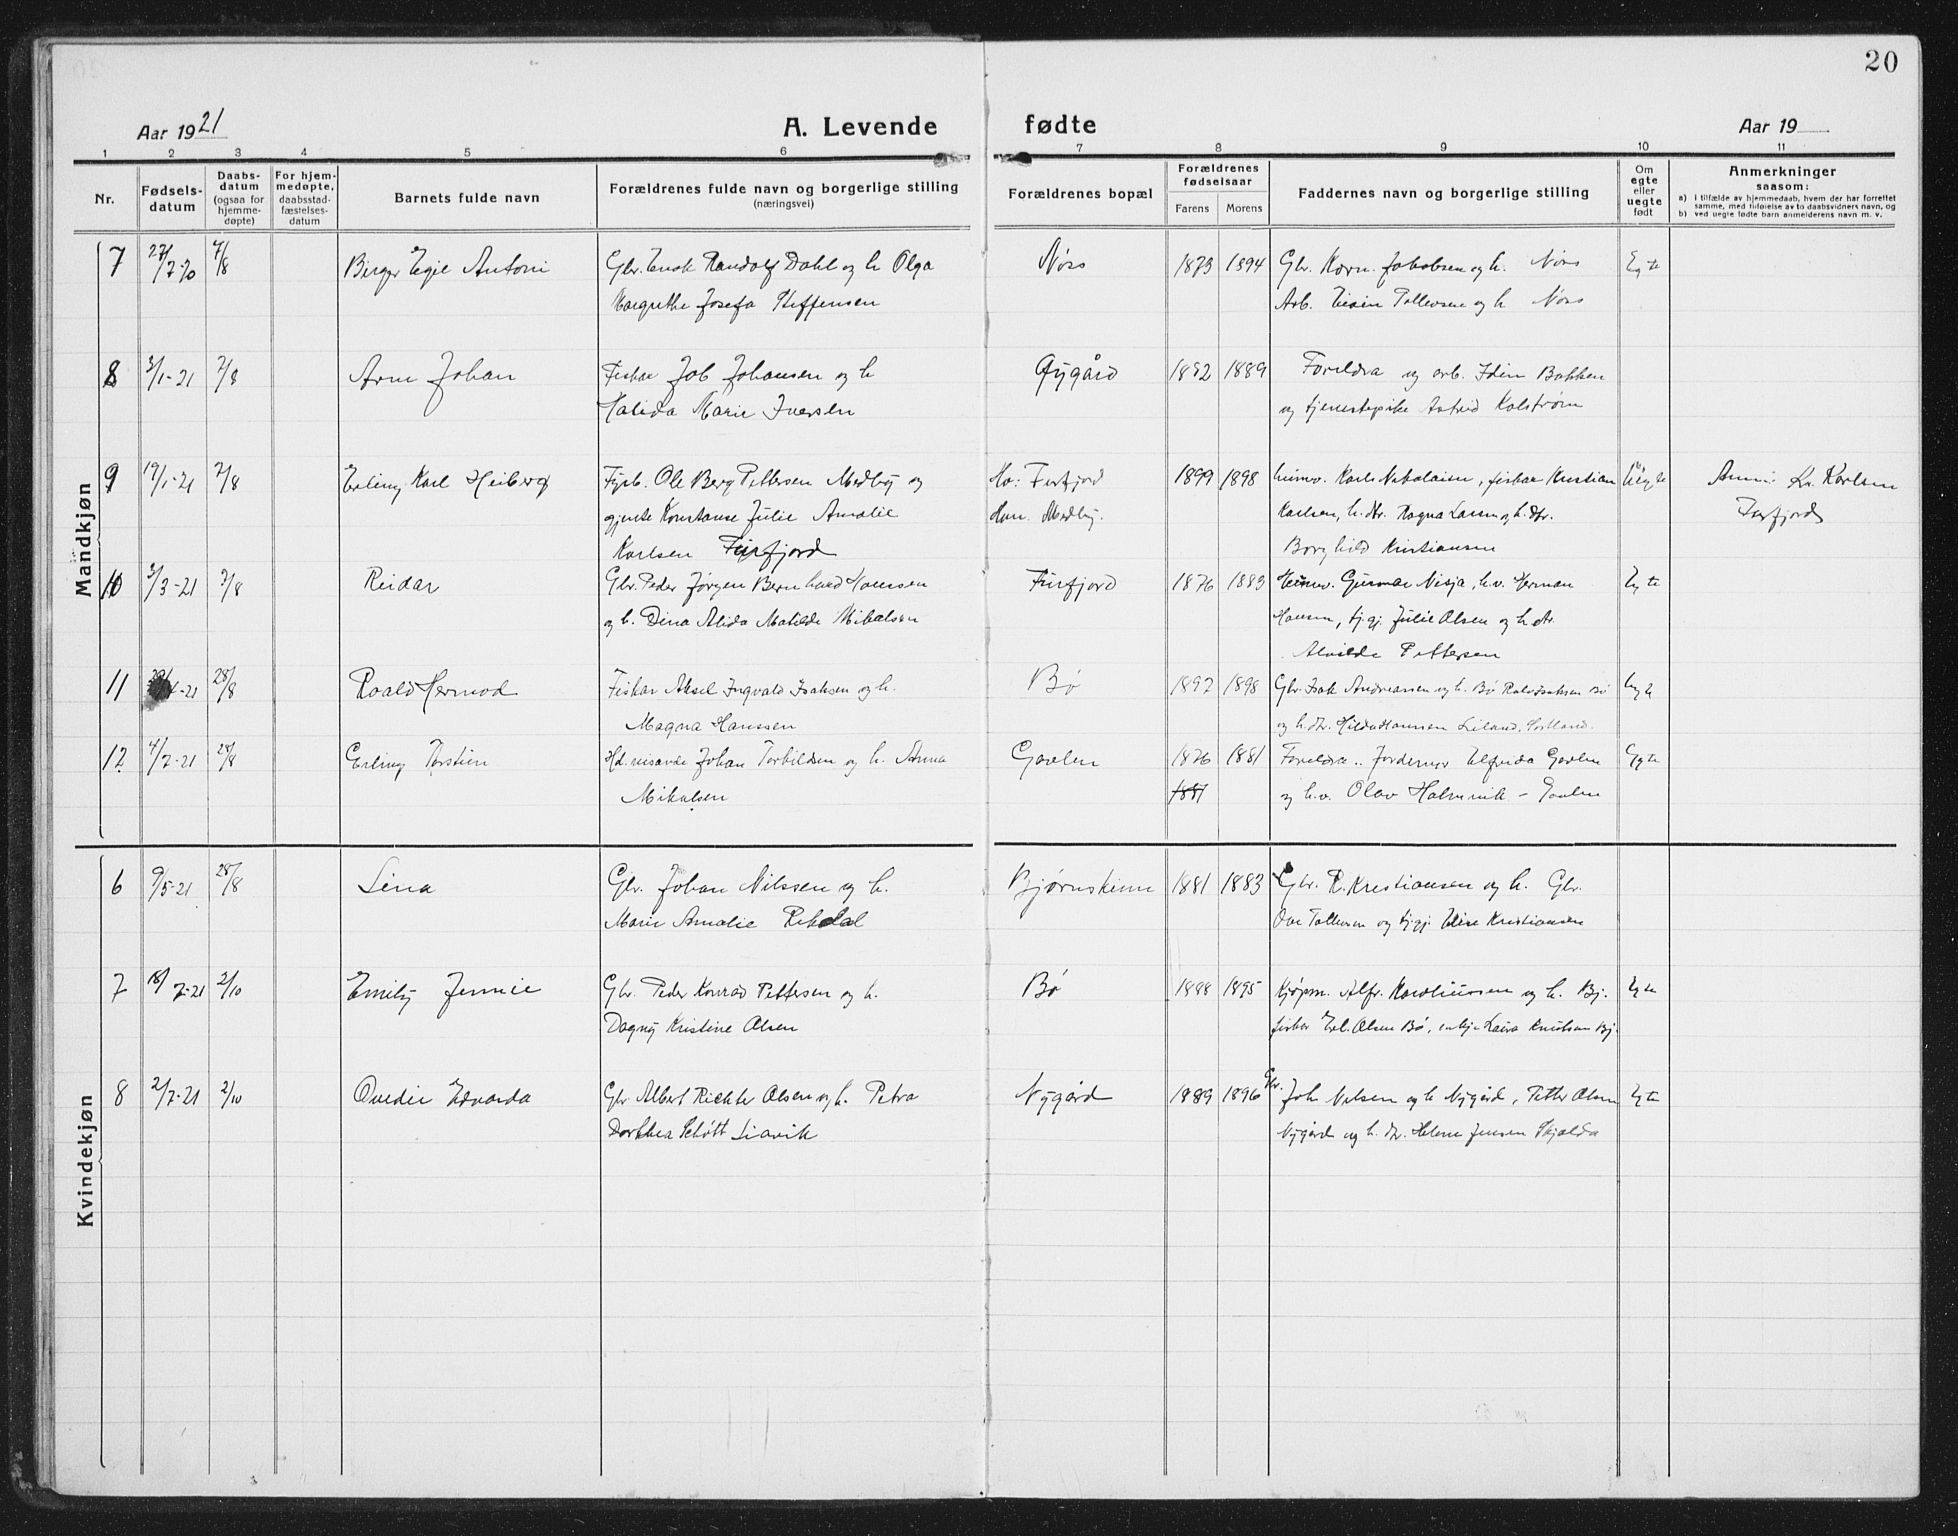 20
Aar 1921
A. Levende fødte
Aar 19
1 2 3 4 5 6 7 8 9 10 11
Nr.
Fødsels-
datum
Daabs-
datum
(ogsaa for
hjemme-
døpte)
For hjem-
medøpte,
daabsstad-
fæstelses-
datum
Barnets fulde navn
Forældrenes fulde navn og borgerlige stilling
(næringsvei)
Forældrenes bopæl
Forældrenes
fødselsaar
Farens Morens
Faddernes navn og borgerlige stilling
Om
egte
eller
uegte
født
Anmerkninger
saasom:
a) i tilfælde av hjemmedaab, hvem der har forrettet
samme, med tilføielse av to daabsvidners navn, og
b) ved uegte fødte barn anmelderens navn m. v.
Mandkjøn
7 27/7-20 7/8 Birger Egil Antoni Gbr. Randolf Dahl og h. Olga Nøss 1873 1894 Gbr. Jakobsen og h. Nøss Egte
Margrethe Josefa Steffensen Arb. Tollevsen og h. Nøss
8 3/1-21 7/8 Arne Johan Fisker Job Johansen og h. Øygård 1892 1889 Foreldra og arb. Bakken
Halida Marie Iversen og tjenestepike Astrid Kolstrøm
9 19/1-21 7/8 Erling Karl Heiberg Fyrb. Ole Berg Pettersen Medby og Ho: Furfjord 1899 1898 Karl Nikolaisen, fisker Kristian Uegte Karlsen
gjente Konstanse Julie Amalie Han. Medby. Karlsen, h.dtr. Ragna Larsen og h.dtr. Furfjord
Karlsen Furfjord Borghild Kristiansen
10 3/3-21 7/8 Reidar Gbr. Peder Jørgen Bernhard Hanssen Furfjord 1876 1883 Gunnar Nesja, h.v. Herman Egte
og h. Dina Alida Matilde Mikalsen Hansen, tj.gj. Julie Olsen og h.dtr.
Alvilde Pettersen
11 4-21 28/8 Roald Hermod Fisker Aksel Ingvald Isaksen og h. Bø 1897 1898 Gbr. Isak Andreassen og h. Bø Isaksen Bø
Magna Hanssen og h.dtr. Hilda Hanssen Leiland, Sortland.
12 4/7-21 28/8 Erling Torstein Hd.reisande Johan Torkildsen og h. Anna Gavlen 1876 1881 Foreldra, Jordemor Elfrida Gavlen Egte
Mikalsen 1881 og h.v. Olav Holmvik - Gavlen
Kvindekjøn
6 9/5-21 28/8 Lina Gbr. Johan Nilssen og h. Bjørnskinn 1881 1883 Gbr. R. Kristiansen og h. Gbr.
Marie Amalie Rekdal Ove Tollevsen og tj.gj. Elise Kristiansen
7 18/7-21 2/10 Emily Jennie Gbr. Peder Konrad Pettersen og h. Bø 1898 1895 Kjøpm. Alfr. Karoliussen og h. Bj. Egte
Dagny Kristine Olsen fisker Erl. Olsen Bø, enkje Laura Knutsen Bj.
8 2/7-21 2/10 Ovedie Edvarda Gbr. Albert Richter Olsen og h. Petra Nygård 1889 1896 Gbr. Joh. Nilsen og h. Nygård, Petter Olsen Egte
Dorthea Schøtt Liavik Nygård og h. dtr. Helene Jensen Skjolda